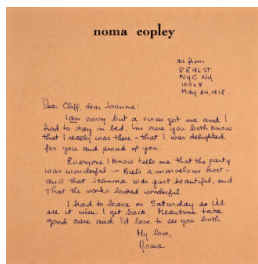 noma copley
as from
NYC NY
Dear Cliff, dear Joanna:
I am sorry but a virus got me and I
had to stay in bed. I'm sure you both know
that I really was there - that I was delighted
for you and proud of you.
Everyone I know tells me that the party
was wonderful - a marvelous host -
and that Joanna was just beautiful, and
that the works looked wonderful
I had to leave on Saturday so I'll
see it when I get back. Meantime take
good care and I'd love to see you both.
My love,
Noma